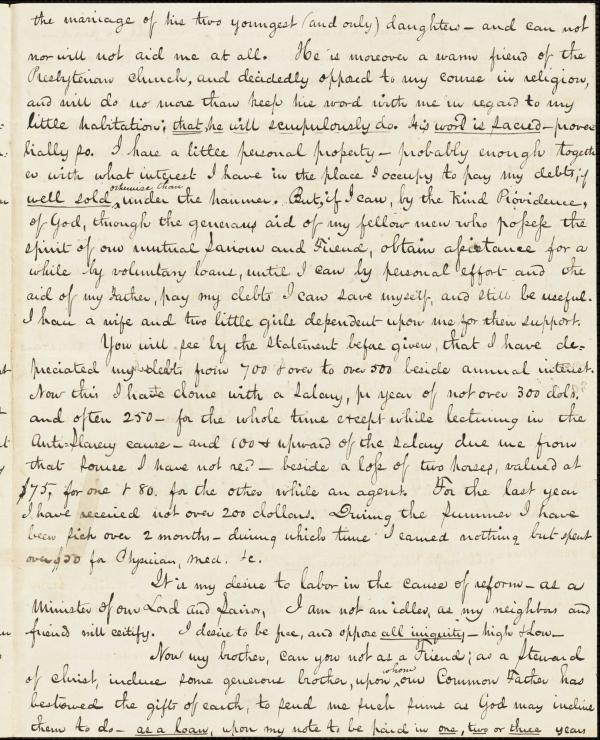 the marriage of his two youngest (and only) daughters – and can not
nor will not aid me at all. He is moreover a warm friend of the
Presbyterian church, and decidedly opposed to my course in religion,
and will do no more than keep his word with me in regard to my
little habitation; that, he will scrupulously do. His word is sacred – prover-
bially so. I have a little personal property – probably enough togeth
er with what interest I have in the place I occupy to pay my debts, if
well sold otherwise than under the hammer. But, if I can, by the kind Providence,
of God, through the generous aid of my fellow men who possess the
spirit of our mutual Saviour and Friend, obtain assistance for a
while by voluntary loans, until I can by personal effort and the
aid of my Father, pay my debts I can save myself, and still be useful.
I have a wife and two little girls dependent upon me for their support.
You will see by the statement before given, that I have de-
preciated my debts from 700 & over to over 500 beside annual interest.
Now this I have done with a salary, pr year of not over 300 dols.
and often 250 – for the whole time except while lecturing in the
Anti-Slavery cause – and 100 & upward of the salary due me from
that source I have not recd – beside a loss of two horses, valued at
$75, for one & 80. for the other while an agent. For the last year
I have received not over 200 dollars. During the summer I have
been sick over 2 months – during which time I earned nothing but spent
over $50 for Physician, med. &c.
It is my desire to labor in the cause of reform – as a
Minister of our Lord and Savior, I am not an idler, as my neighbors and
friend will certify. I desire to be free, and oppose all iniquity – high & low –
Now my brother, can you not as a Friend; as a Steward
of Christ, induce some generous brother, upon whom our Common Father has
bestowed the gifts of earth, to send me such sums as God may incline
them to do – as a loan, upon my note to be paid in one, two or three years